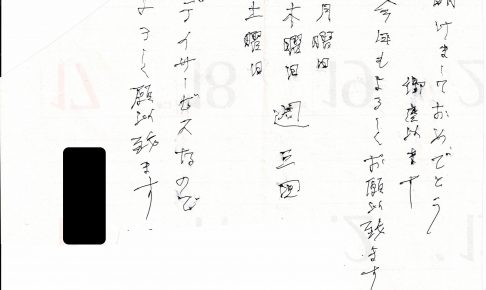 明けましておめでとう
御座います
今年もよろしくお願い致します
月曜日
木曜日 週三回
土曜日
デイサービスなので
よろしく願い致ます